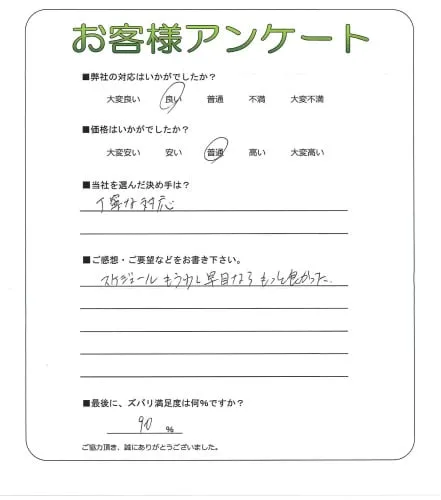 お客様アンケート
■弊社の対応はいかがでしたか？
大変良い 良い 普通 不満 大変不満
■価格はいかがでしたか？
大変安い 安い 普通 高い 大変高い
■当社を選んだ決め手は？
丁寧な対応
■ご感想・ご要望などをお書き下さい。
スケジュール もう少し早目なら もっと良かった
■最後に、ズバリ満足度は何％ですか？
90 ％
ご協力頂き、誠にありがとうございました。